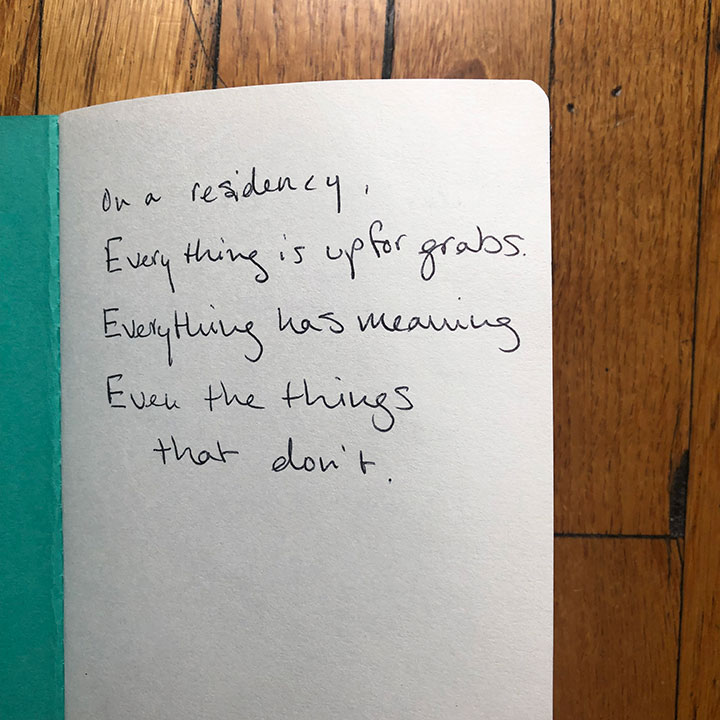 On a residency,
Everything is up for grabs.
Everything has meaning
Even the things
that don't.